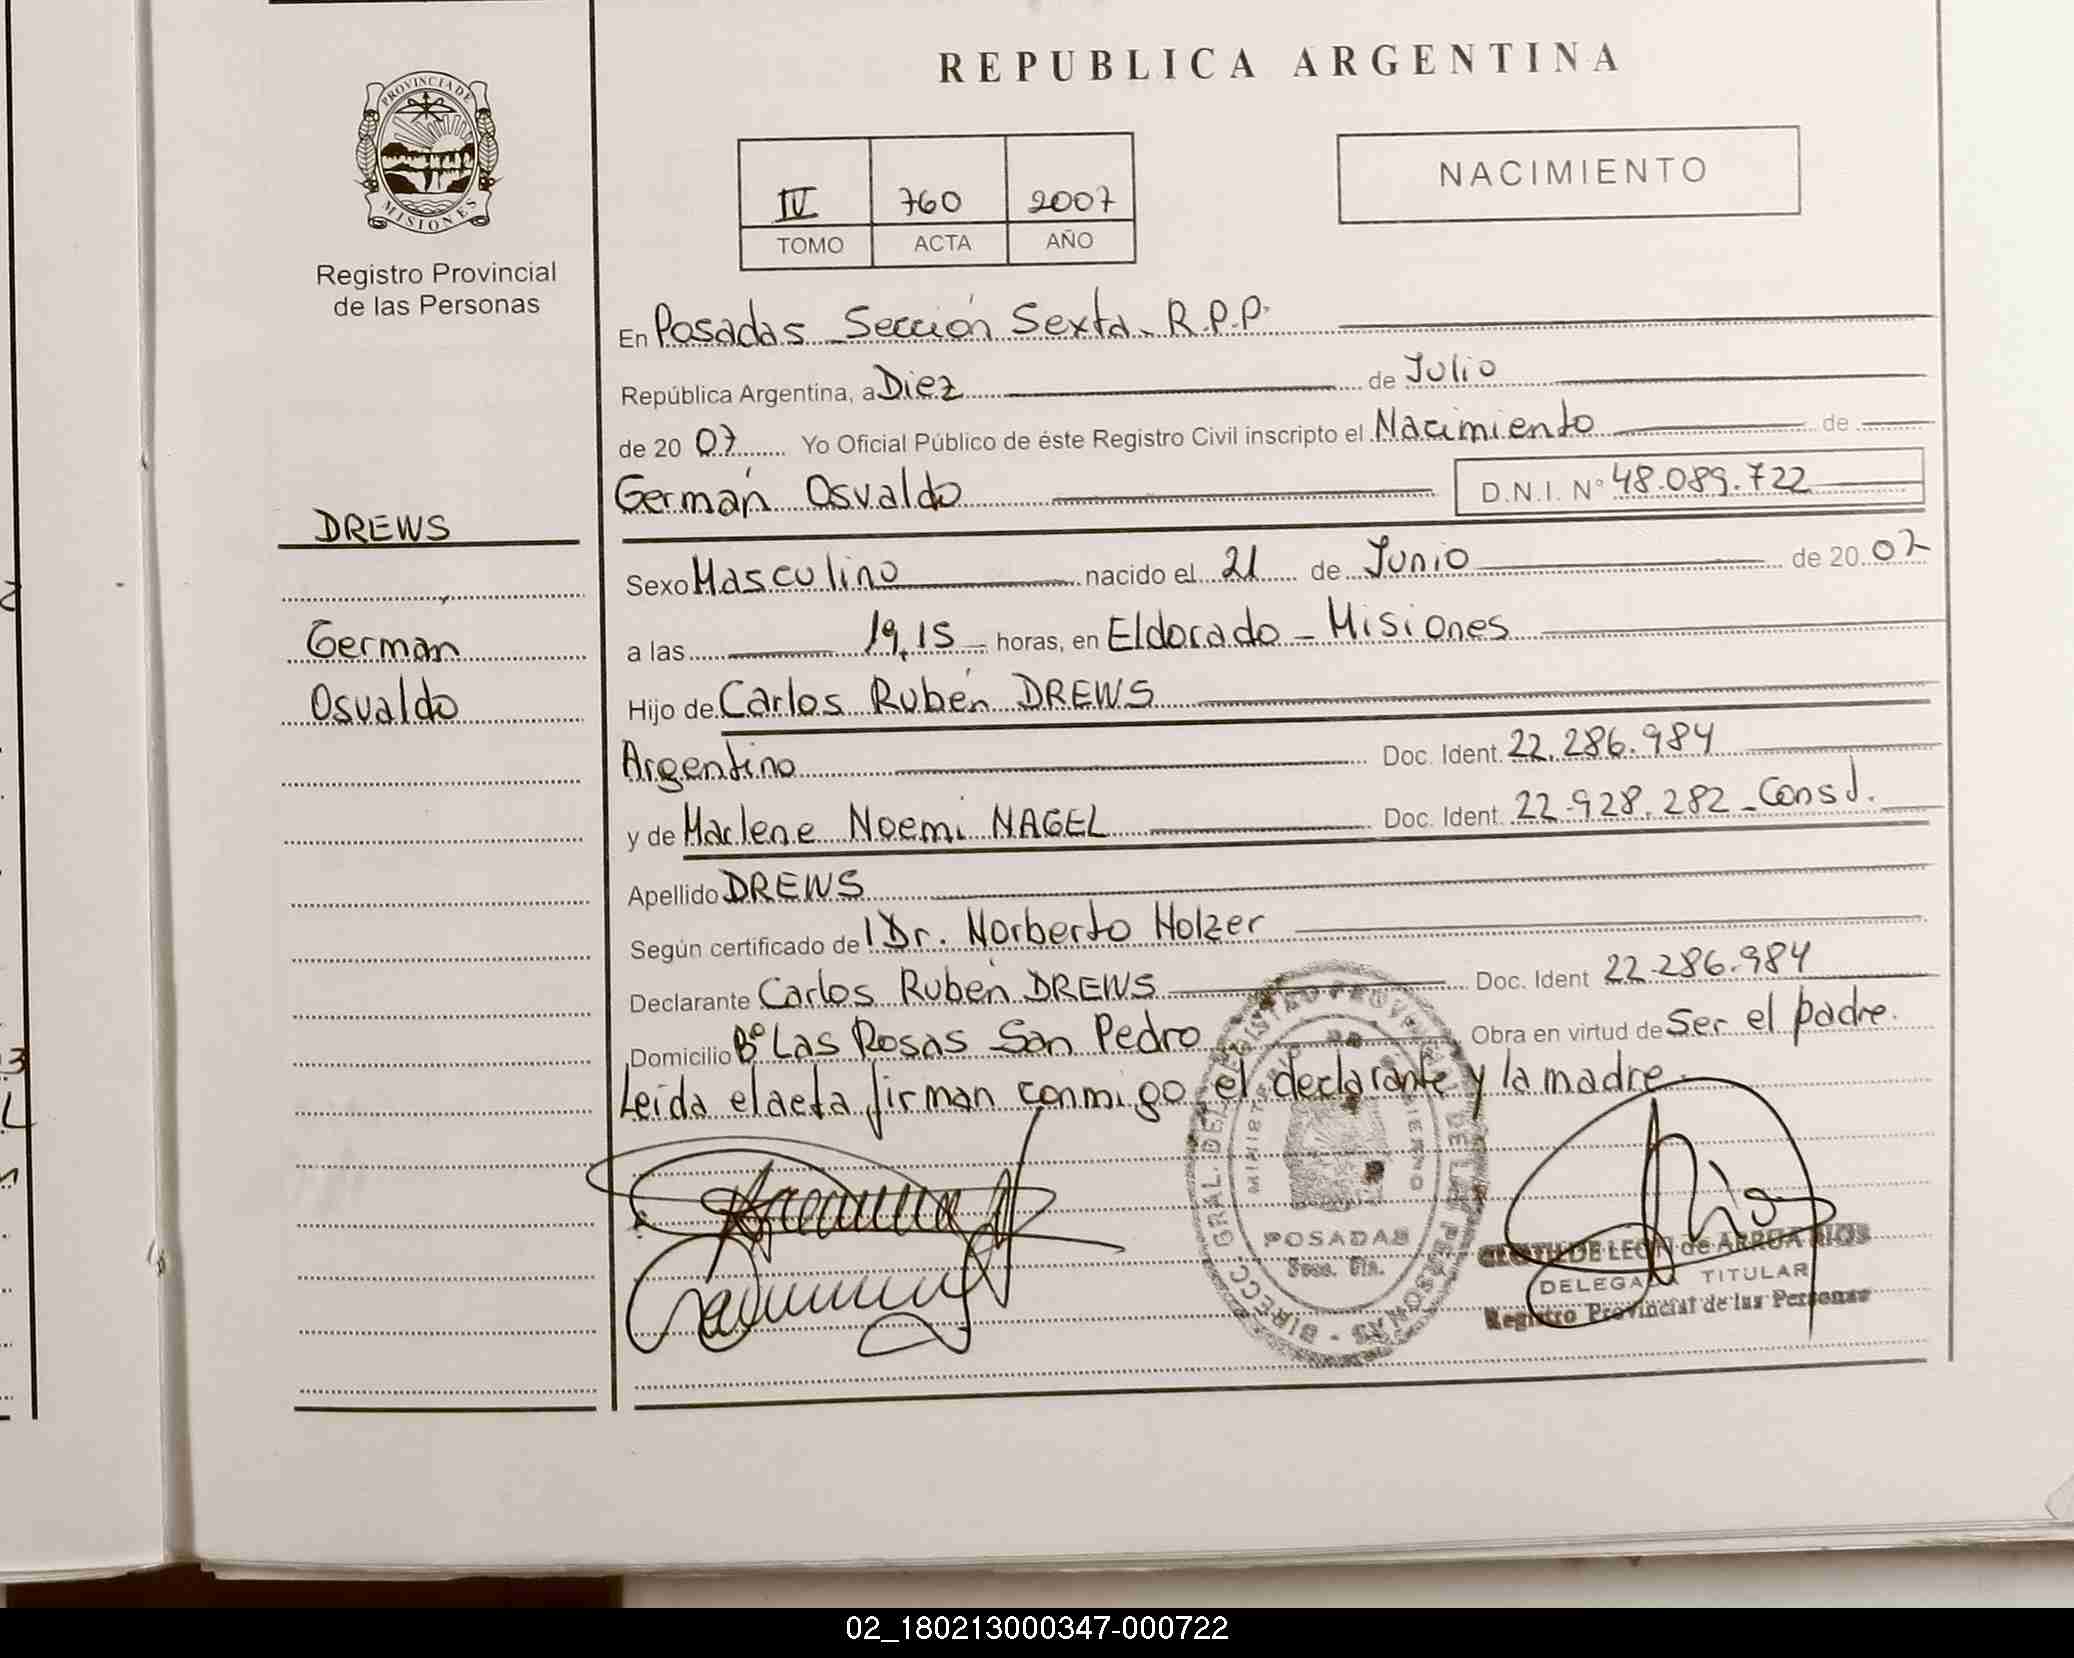 PROVINCIA DE
MISIONES
Registro Provincial
de las Personas
REPUBLICA ARGENTINA
IV 760 2007
TOMO ACTA AÑO
NACIMIENTO
En Posadas - Sección Sexta. R.P.P.
República Argentina, a Diez de Julio
de 20 07 Yo Oficial Público de éste Registro Civil inscripto el Nacimiento de
Germán Osvaldo D.N.I. N° 48.089.722
DREWS
German
Osvaldo
Sexo Masculino nacido el 21 de Junio de 20 07
a las 19,15 horas, en Eldorado - Misiones
Hijo de Carlos Rubén DREWS
Argentino Doc. Ident. 22.286.984
y de Marlene Noemi NAGEL Doc. Ident. 22.928.282 - Const.
Apellido DREWS
Según certificado de l Dr. Norberto Holzer
Declarante Carlos Rubén DREWS Doc. Ident 22.286.984
Domicilio B° Las Rosas San Pedro Obra en virtud de Ser el padre.
Leída el acta firman conmigo el declarante y la madre
POSADAS
DE LEON de ARRUA RIOS
DELEGADA TITULAR
Registro Provincial de las Personas
02_180213000347-000722